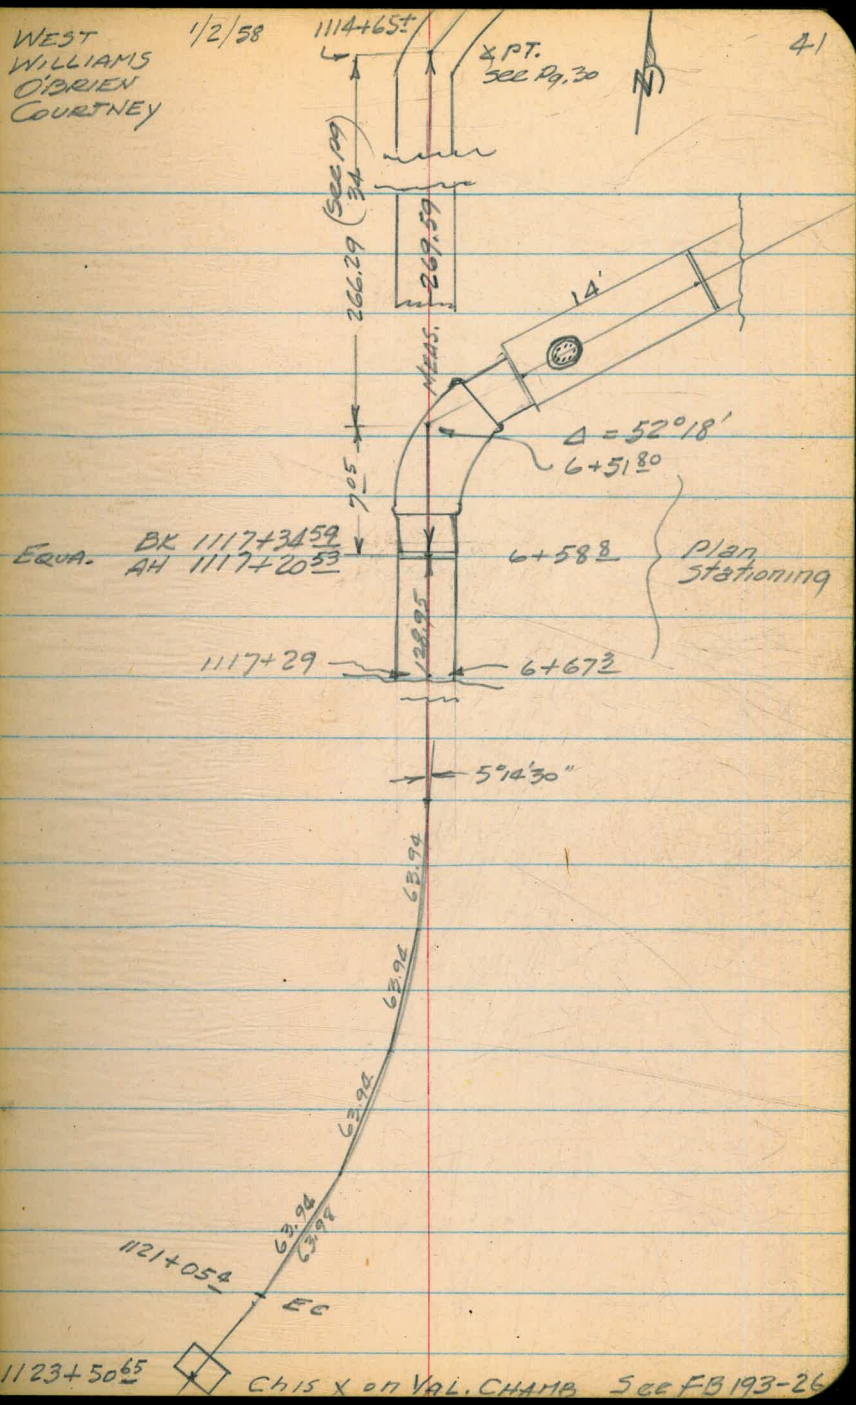 WEST
WILLIAMS
O'BRIEN
COURTNEY
1/2/58
1114+65±
∡ PT.
See Pg. 30
41
N
266.29 (See Pg
34)
MEAS. 269.59
14'
Δ = 52°18'
6+51 80
7 05
EQUA. BK 1117+34 59
AH 1117+20 53
6+58 8
Plan
Stationing
128.95
1117+29
6+67 3
5°14'30"
63.94
63.94
63.94
63.94
63.98
1121+05 4
EC
1123+50 65
Chis X on VAL. CHAMB See FB 193-26